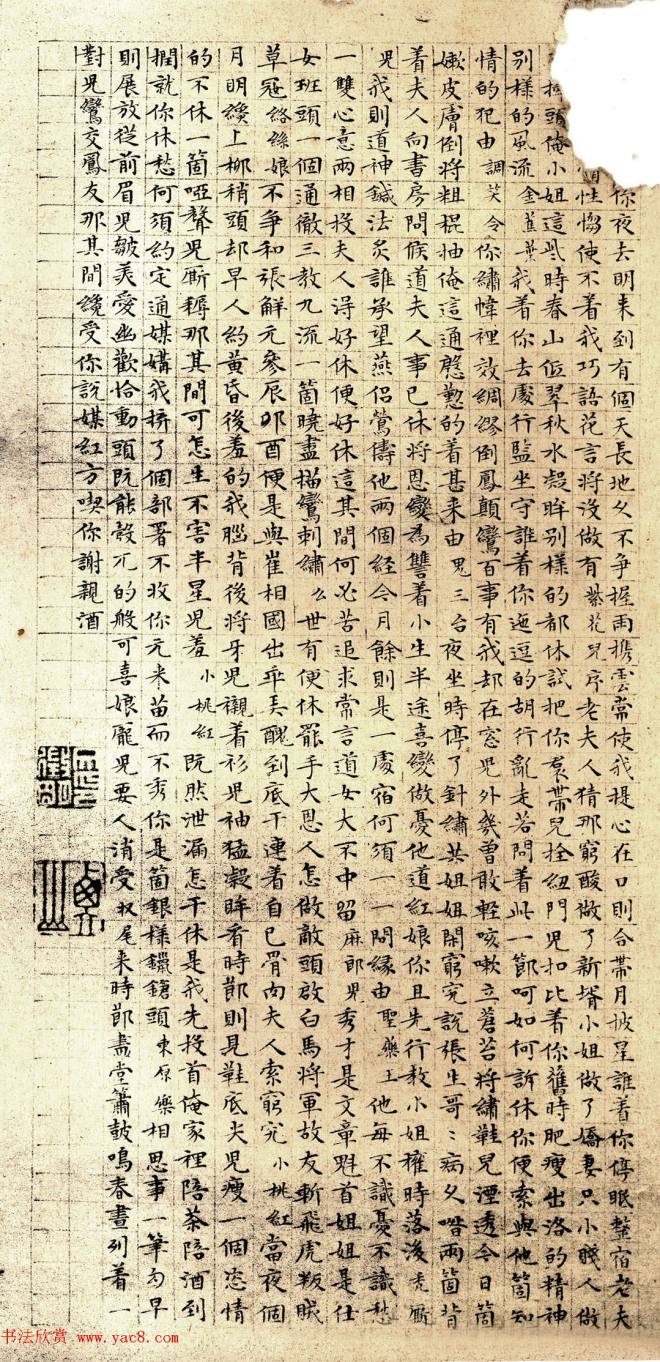 你夜去明来到有個天長地久不争握雨携雲常使我提心在口則合帶月披星誰着你停眠整宿老夫
情性㑳使不着我巧語花言將没做有 紫花兒序 老夫人猜那窮酸做了新壻小姐做了嬌妻只小賤人做
頭俺小姐這些時春山低翠秋水凝眸別樣的都休試把你裙帶兒拴紐門兒扣比着你舊時肥瘦出洛的精神
別樣的風流 金蕉葉 我着你去處行監坐守誰着你迤逗的胡行亂走若問着此一節呵如何訴休你便索與他箇知
情的犯由 調笑令 你繡幃裡效綢繆倒鳳顛鸞百事有我却在窓兒外幾曾敢輕咳嗽立蒼苔將繡鞋兒湮透今日箇
嫩皮膚倒將粗棍抽俺這通慇懃的着甚来由 鬼三台 夜坐時停了針繡共姐姐閑窮究說張生哥ミ病久喒兩箇背
着夫人向書房問候道夫人事已休將恩變為讐着小生半途喜變做憂他道紅娘你且先行教小姐權時落後 禿厮
兒 我則道神鍼法灸誰承望燕侣鶯儔他兩個經今月餘則是一處宿何須一一問縁由 聖藥王 他每不識憂不識愁
一雙心意兩相投夫人淂好休便好休這其間何必苦追求常言道女大不中留 麻郎兒 秀才是文章魁首姐姐是仕
女班頭一個通徹三教九流一箇曉盡描鸞刺繡 么 世有便休罷手大恩人怎做敵頭啟白馬將軍故友斬飛虎叛賊
草冦 絡絲娘 不争和張解元參辰卯酉便是與崔相國出乖弄醜到底干連着自已骨肉夫人索窮究 小桃紅 當夜個
月明纔上柳稍頭却早人約黄昏後羞的我腦背後將牙兒襯着衫兒袖猛凝眸看時節則見鞋底尖兒瘦一個恣情
的不休一箇啞聲兒厮耨那其間可怎生不害半星兒羞 小桃紅 既然泄漏怎干休是我先投首俺家裡陪茶陪酒到
撋就你休愁何須約定通媒媾我擠了個部署不收你元来苗而不秀你是箇銀樣鑞鎗頭 東原樂 相思事一筆勾早
則展放從前眉兒皺美愛幽歡恰動頭既能彀兀的般可喜娘龐兒要人消受 收尾 来時節畫堂簫皷鳴春晝列着一
對兒鸞交鳳友那其間纔受你說媒紅方喫你謝親酒
书法欣赏 www.yac8.com